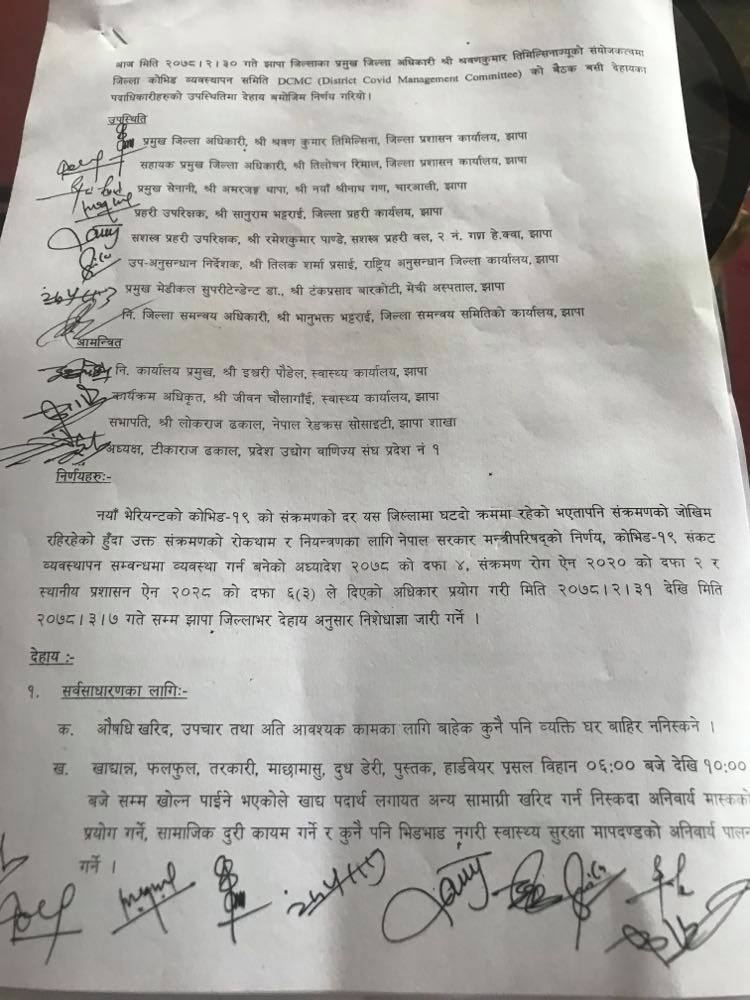 आज मिति २०७८।२।३० गते झापा जिल्लाका प्रमुख जिल्ला अधिकारी श्री श्रवणकुमार तिमिल्सिनाज्यूको संयोजकत्वमा
जिल्ला कोभिड व्यवस्थापन समिति DCMC (District Covid Management Committee) को बैठक बसी देहायका
पदाधिकारीहरुको उपस्थितिमा देहाय बमोजिम निर्णय गरियो।
उपस्थिति
प्रमुख जिल्ला अधिकारी, श्री श्रवण कुमार तिमिल्सिना, जिल्ला प्रशासन कार्यालय, झापा
सहायक प्रमुख जिल्ला अधिकारी, श्री तिलोचन रिमाल, जिल्ला प्रशासन कार्यालय, झापा
प्रमुख सेनानी, श्री अमरजङ्ग थापा, श्री नयाँ श्रीनाथ गण, चारआली, झापा
प्रहरी उपरिक्षक, श्री सानुराम भट्टराई, जिल्ला प्रहरी कार्यलय, झापा
सशस्त्र प्रहरी उपरिक्षक, श्री रमेशकुमार पाण्डे, सशस्त्र प्रहरी वल, २ नं. गण हे.क्वा, झापा
उप-अनुसन्धान निर्देशक, श्री तिलक शर्मा प्रसाई, राष्ट्रिय अनुसन्धान जिल्ला कार्यालय, झापा
प्रमुख मेडीकल सुपरीटेन्डेन्ट डा., श्री टंकप्रसाद बारकोटी, मेची अस्पताल, झापा
नि. जिल्ला समन्वय अधिकारी, श्री भानुभक्त भट्टराई, जिल्ला समन्वय समितिको कार्यालय, झापा
आमन्त्रित
नि. कार्यालय प्रमुख, श्री इश्वरी पौडेल, स्वास्थ्य कार्यालय, झापा
कार्यक्रम अधिकृत, श्री जीवन चौलागाँई, स्वास्थ्य कार्यालय, झापा
सभापति, श्री लोकराज ढकाल, नेपाल रेडक्रस सोसाइटी, झापा शाखा
अध्यक्ष, टीकाराज ढकाल, प्रदेश उद्योग वाणिज्य संघ प्रदेश नं १
निर्णयहरुः-
नयाँ भेरियन्टको कोभिड-१९ को संक्रमणको दर यस जिल्लामा घटदो क्रममा रहेको भएतापनि संक्रमणको जोखिम
रहिरहेको हुँदा उक्त संक्रमणको रोकथाम र नियन्त्रणका लागि नेपाल सरकार मन्त्रीपरिषद्को निर्णय, कोभिड-१९ संकट
व्यवस्थापन सम्बन्धमा व्यवस्था गर्न बनेको अध्यादेश २०७८ को दफा ४, संक्रमण रोग ऐन २०२० को दफा २ र
स्थानीय प्रशासन ऐन २०२८ को दफा ६(३) ले दिएको अधिकार प्रयोग गरी मिति २०७८।२।३१ देखि मिति
२०७८।३।७ गते सम्म झापा जिल्लाभर देहाय अनुसार निशेधाज्ञा जारी गर्ने ।
देहाय :-
१. सर्वसाधारणका लागिः-
क. औषधि खरिद, उपचार तथा अति आवश्यक कामका लागि बाहेक कुनै पनि व्यक्ति घर बाहिर ननिस्कने ।
ख. खाद्यान्न, फलफुल, तरकारी, माछामासु, दुध डेरी, पुस्तक, हार्डवेयर प्रसल विहान ०६:०० बजे देखि १०:००
बजे सम्म खोल्न पाईने भएकोले खाद्य पदार्थ लगायत अन्य सामाग्री खरिद गर्न निस्कदा अनिवार्य मास्कको
प्रयोग गर्ने, सामाजिक दुरी कायम गर्ने र कुनै पनि भिडभाड नगरी स्वास्थ्य सुरक्षा मापदण्डको अनिवार्य पालन
गर्ने ।